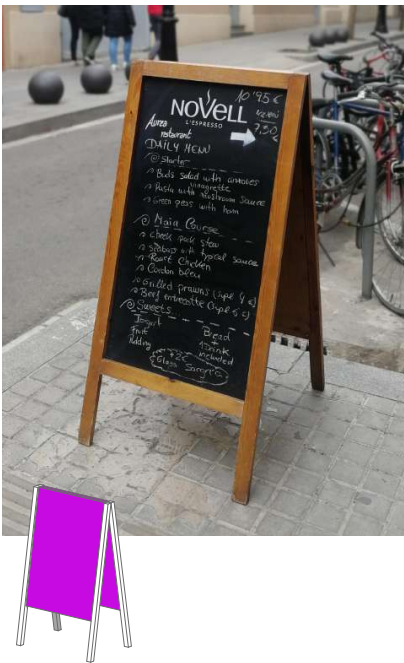 10'95€
NOVELL
L'ESPRESSO
Aurea
restaurant
7,50
€
DAILY MENU
Starter
Buds salad with anchovies
vinagrette
Pasta with mushroom sauce
Green peas with ham
Main Course
cheek pork stew
Seabass with typical sauce
Roast Chicken
Cordon bleu
Grilled prawns (supl 4 €)
Beef entrecotte (supl 5 €)
Sweets
Yogurt
Fruit
Pudding
Bread
+
Drink
included
+2€
Glass Sangria